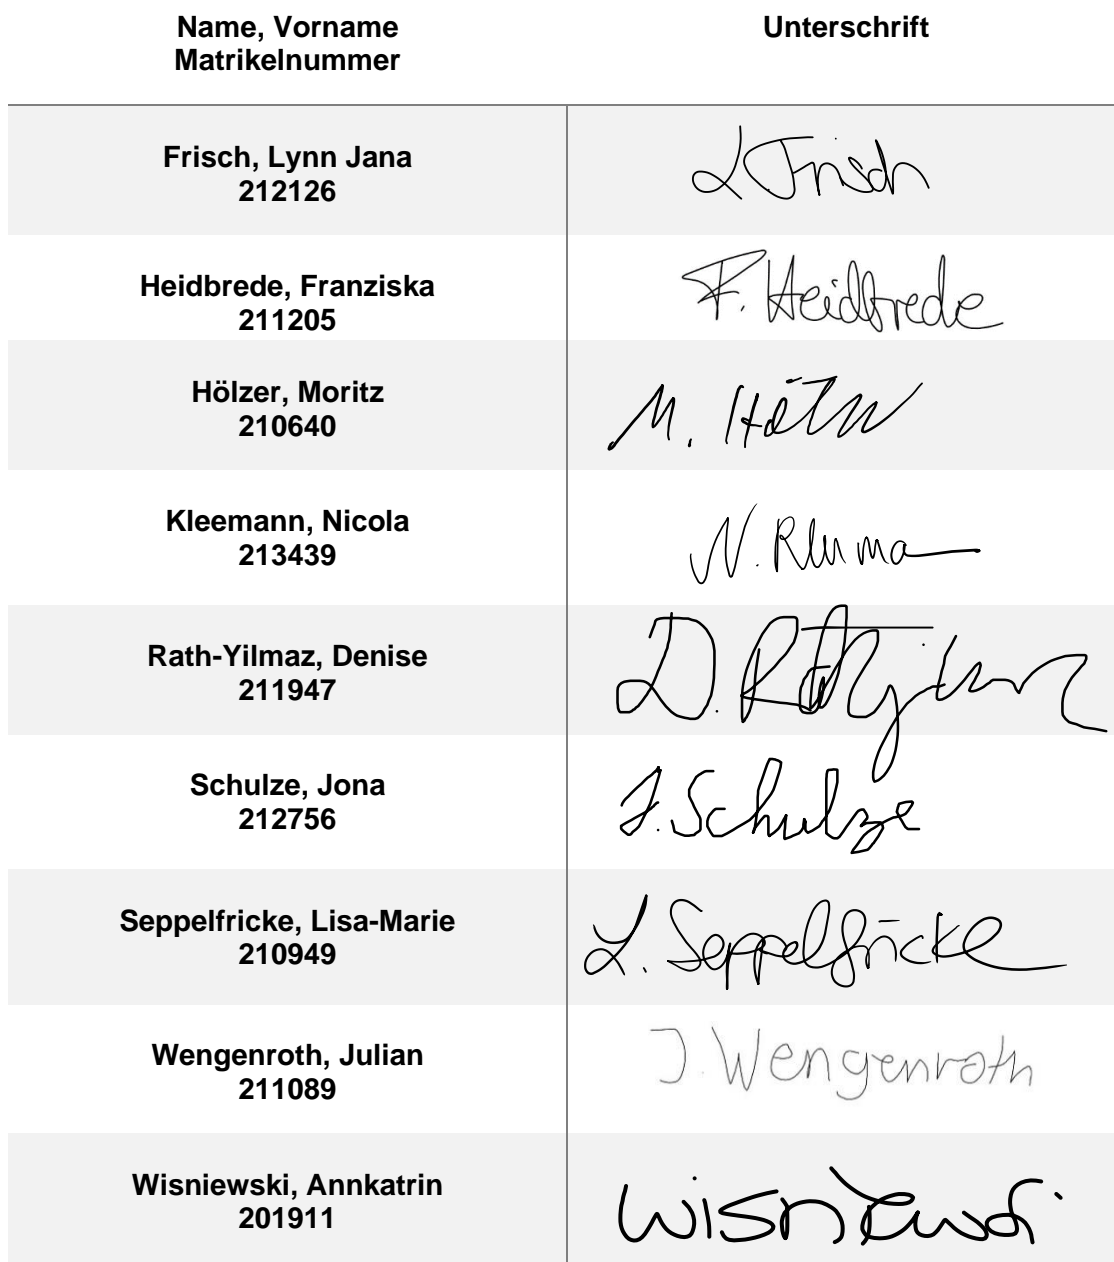 Name, Vorname
Matrikelnummer
Unterschrift
Frisch, Lynn Jana
212126
L Frisch
Heidbrede, Franziska
211205
F. Heidbrede
Hölzer, Moritz
210640
M. Hölzer
Kleemann, Nicola
213439
N.
Rath-Yilmaz, Denise
211947
D.
Schulze, Jona
212756
J. Schulze
Seppelfricke, Lisa-Marie
210949
L. Seppelfricke
Wengenroth, Julian
211089
J. Wengenroth
Wisniewski, Annkatrin
201911
Wisniewski